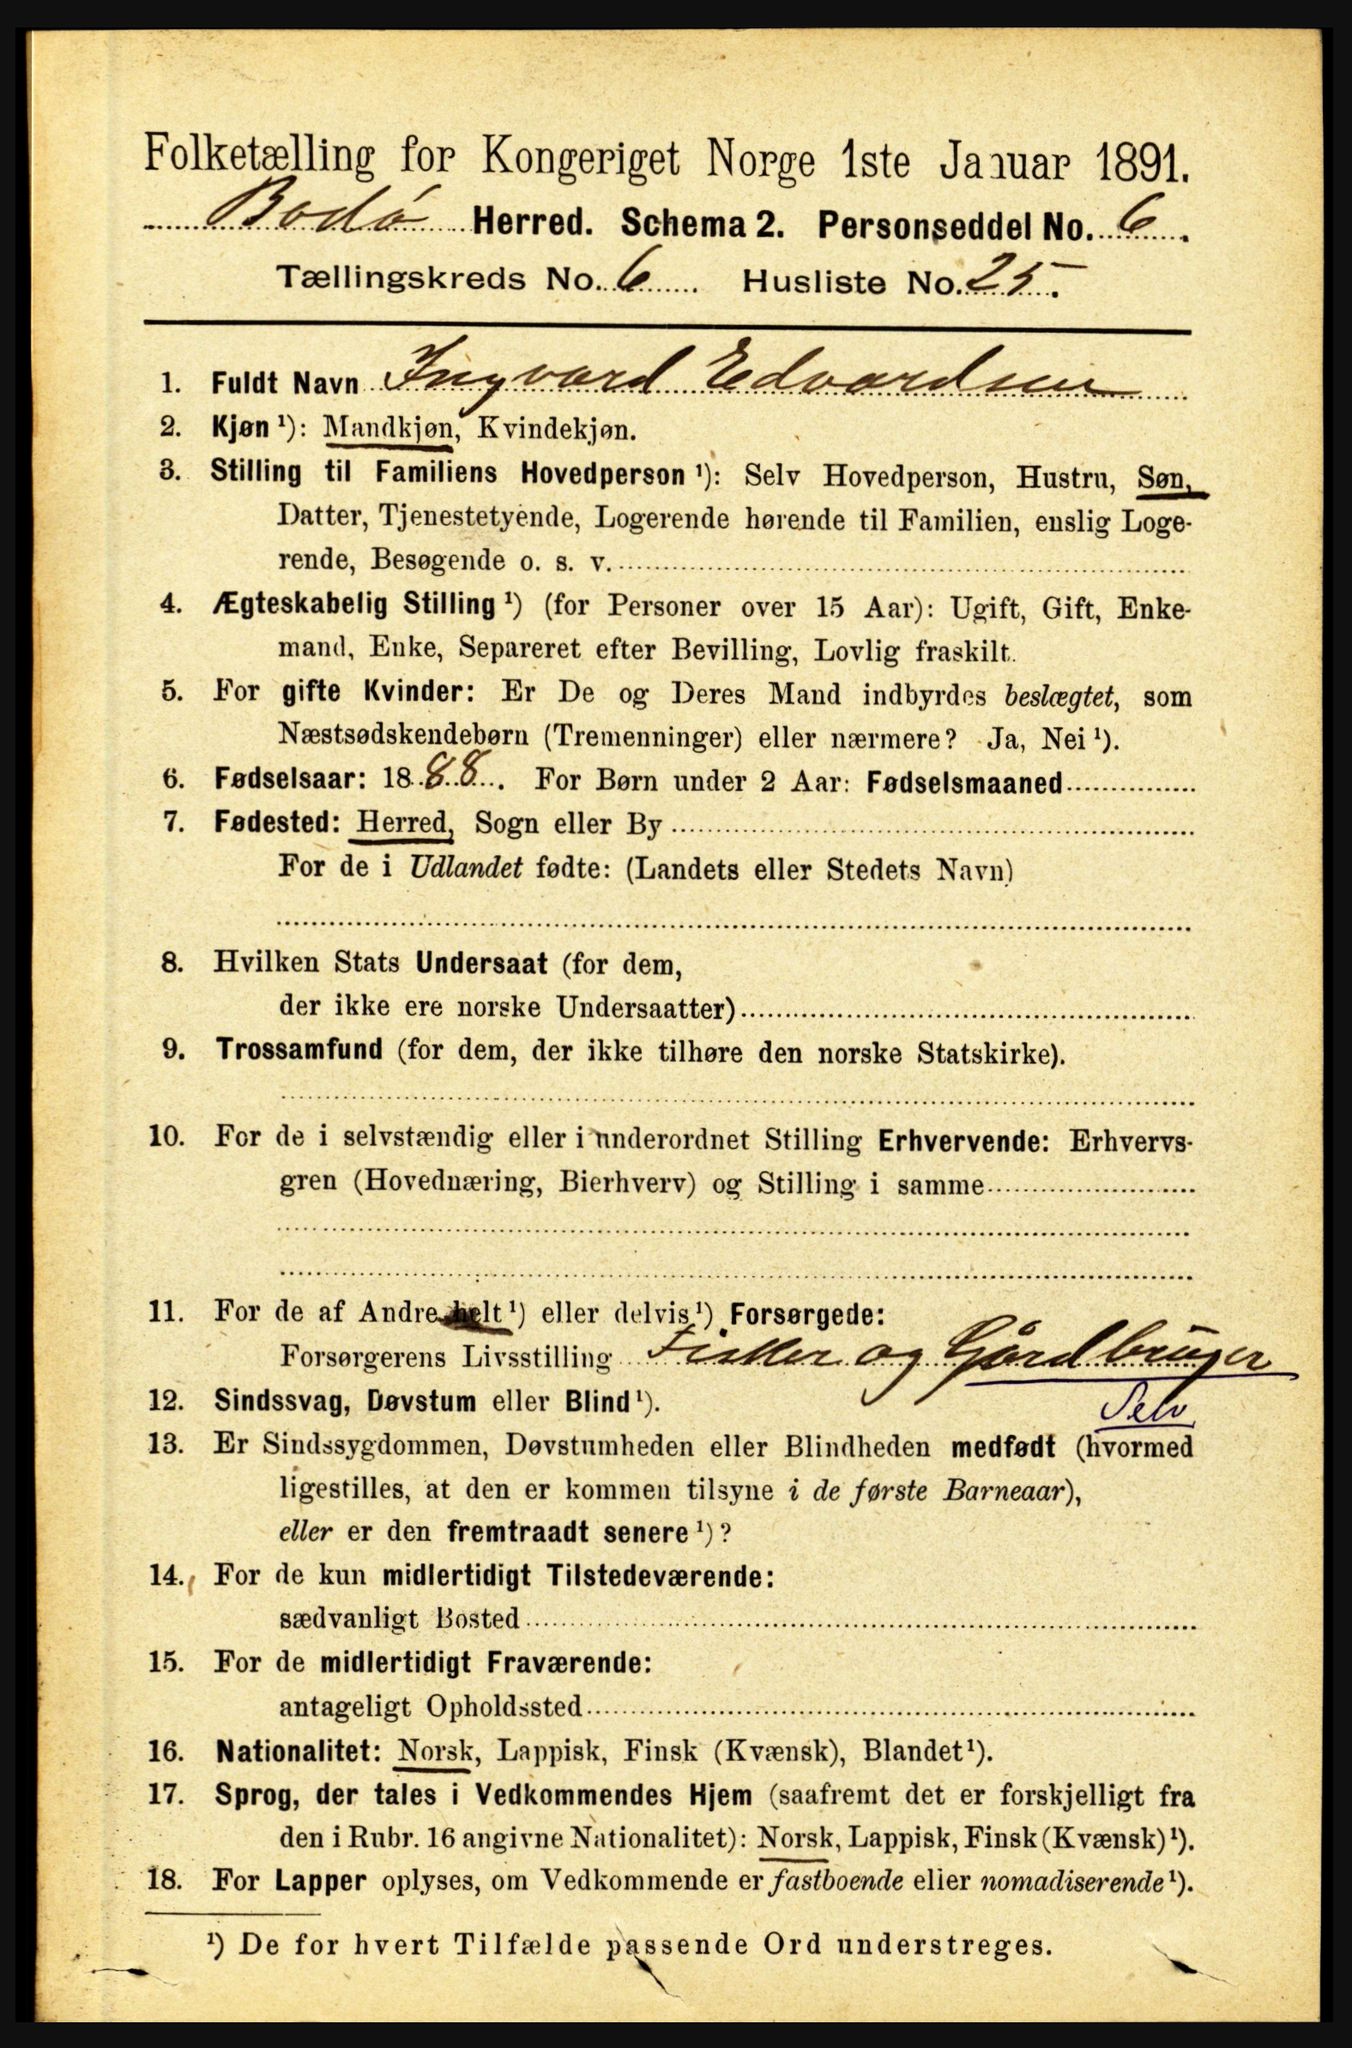 Folketælling for Kongeriget Norge 1ste Januar 1891.
Bodø Herred. Schema 2. Personseddel No. 6.
Tællingskreds No. 6 Husliste No. 25.
1. Fuldt Navn Ingvard Edvardsen
2. Kjøn ¹): Mandkjøn, Kvindekjøn.
3. Stilling til Familiens Hovedperson ¹): Selv Hovedperson, Hustru, Søn,
Datter, Tjenestetyende, Logerende hørende til Familien, enslig Loge-
rende, Besøgende o. s. v.
4. Ægteskabelig Stilling ¹) (for Personer over 15 Aar): Ugift, Gift, Enke-
mand, Enke, Separeret efter Bevilling, Lovlig fraskilt.
5. For gifte Kvinder: Er De og Deres Mand indbyrdes beslægtet, som
Næstsødskendebørn (Tremenninger) eller nærmere? Ja, Nei ¹).
6. Fødselsaar: 1888. For Børn under 2 Aar: Fødselsmaaned
7. Fødested: Herred, Sogn eller By
For de i Udlandet fødte: (Landets eller Stedets Navn)
8. Hvilken Stats Undersaat (for dem,
der ikke ere norske Undersaatter)
9. Trossamfund (for dem, der ikke tilhøre den norske Statskirke).
10. For de i selvstændig eller i underordnet Stilling Erhvervende: Erhvervs-
gren (Hovednæring, Bierhverv) og Stilling i samme
11. For de af Andre helt ¹) eller delvis ¹) Forsørgede:
Forsørgerens Livsstilling Fisker og Gårdbruger
12. Sindssvag, Døvstum eller Blind ¹). Selv
13. Er Sindssygdommen, Døvstumheden eller Blindheden medfødt (hvormed
ligestilles, at den er kommen tilsyne i de første Barneaar),
eller er den fremtraadt senere ¹)?
14. For de kun midlertidigt Tilstedeværende:
sædvanligt Bosted
15. For de midlertidigt Fraværende:
antageligt Opholdssted
16. Nationalitet: Norsk, Lappisk, Finsk (Kvænsk), Blandet ¹).
17. Sprog, der tales i Vedkommendes Hjem (saafremt det er forskjelligt fra
den i Rubr. 16 angivne Nationalitet): Norsk, Lappisk, Finsk (Kvænsk) ¹).
18. For Lapper oplyses, om Vedkommende er fastboende eller nomadiserende ¹).
¹) De for hvert Tilfælde passende Ord understreges.